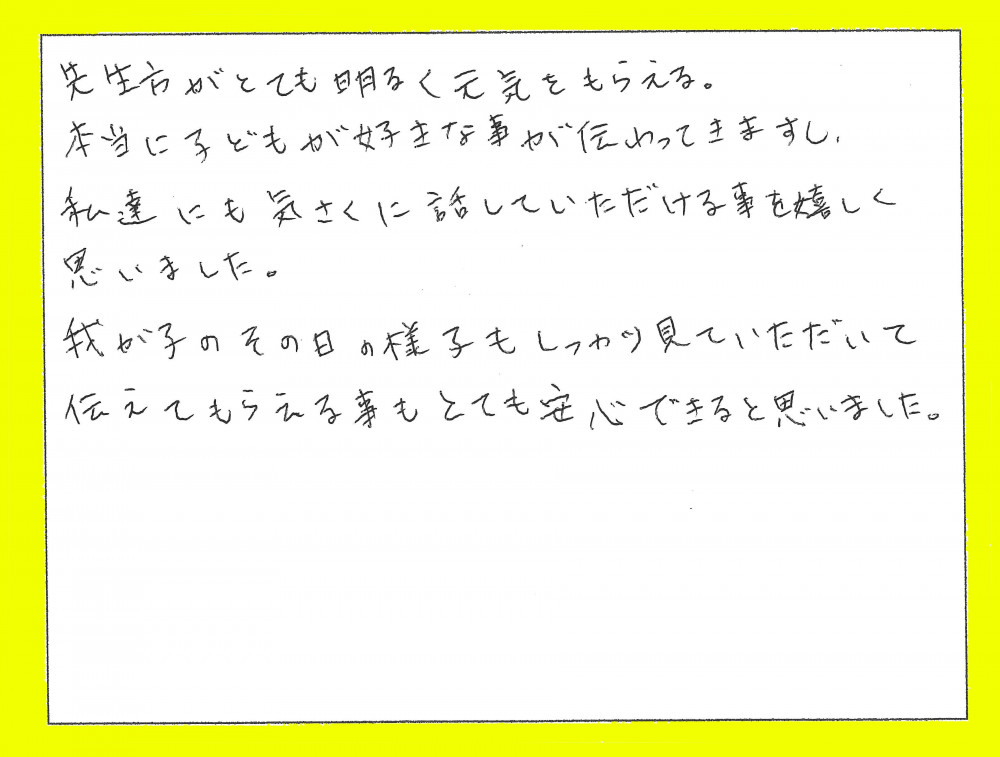 先生方がとても明るく元気をもらえる。
本当に子どもが好きな事が伝わってきますし、
私達にも気さくに話していただける事を嬉しく
思いました。
我が子のその日の様子もしっかり見ていただいて
伝えてもらえる事もとても安心できると思いました。